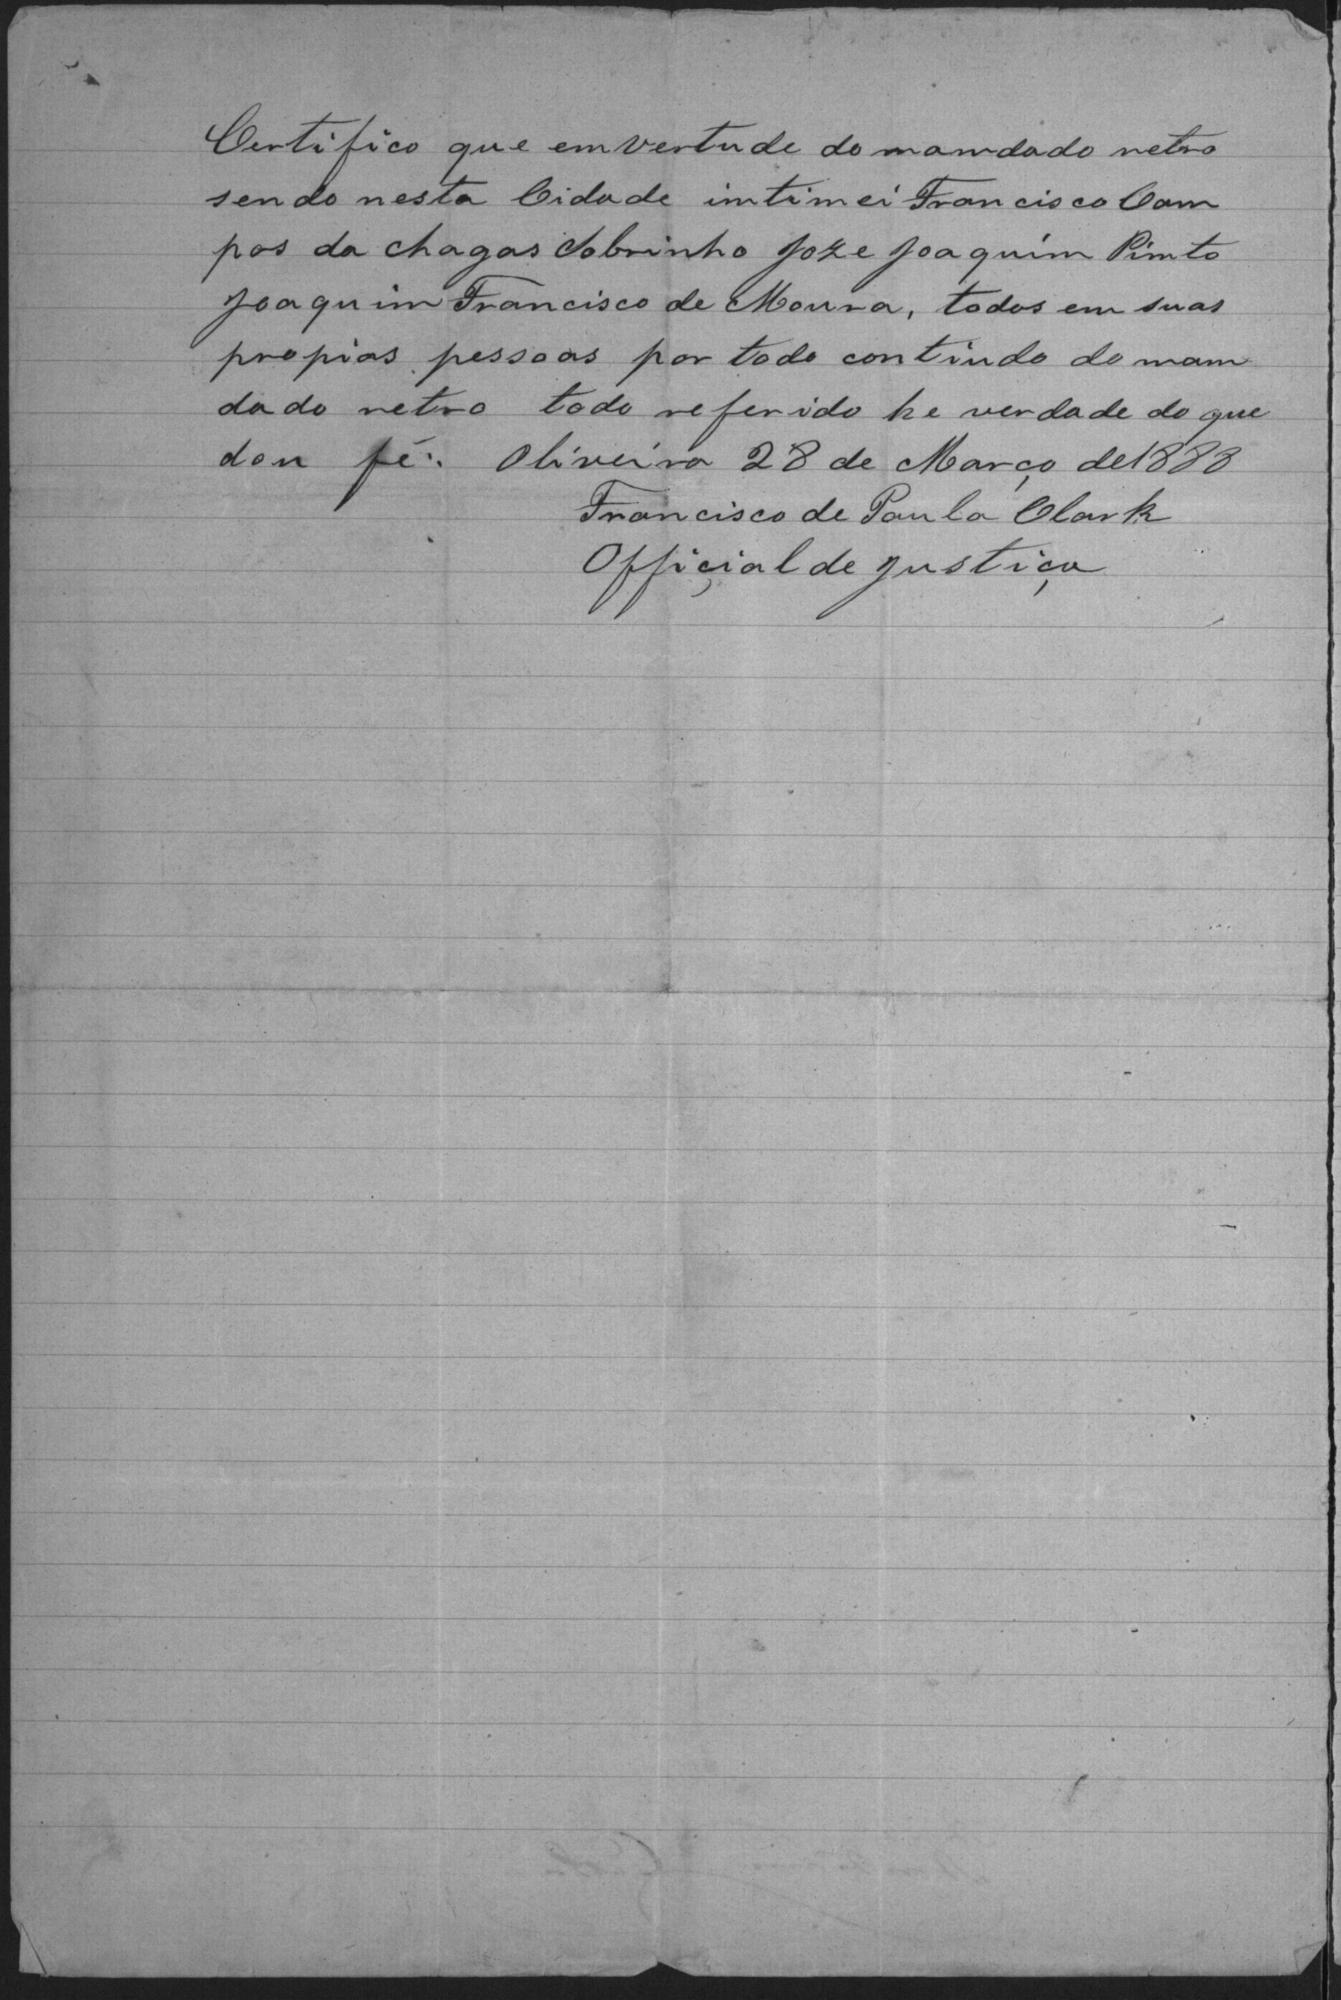 Certifico que em vertude do mamdado retro
sendo nesta Cidade imtimei Francisco Cam
pos da chagas Sobrinho Joze Joaquim Pimto
Joaquim Francisco de Moura, todos em suas
propias pessoas por todo contiudo do mam
dado retro todo referido he verdade do que
dou fé. Oliveira 28 de Março de 1888
Francisco de Paula Clark
Official de justiça